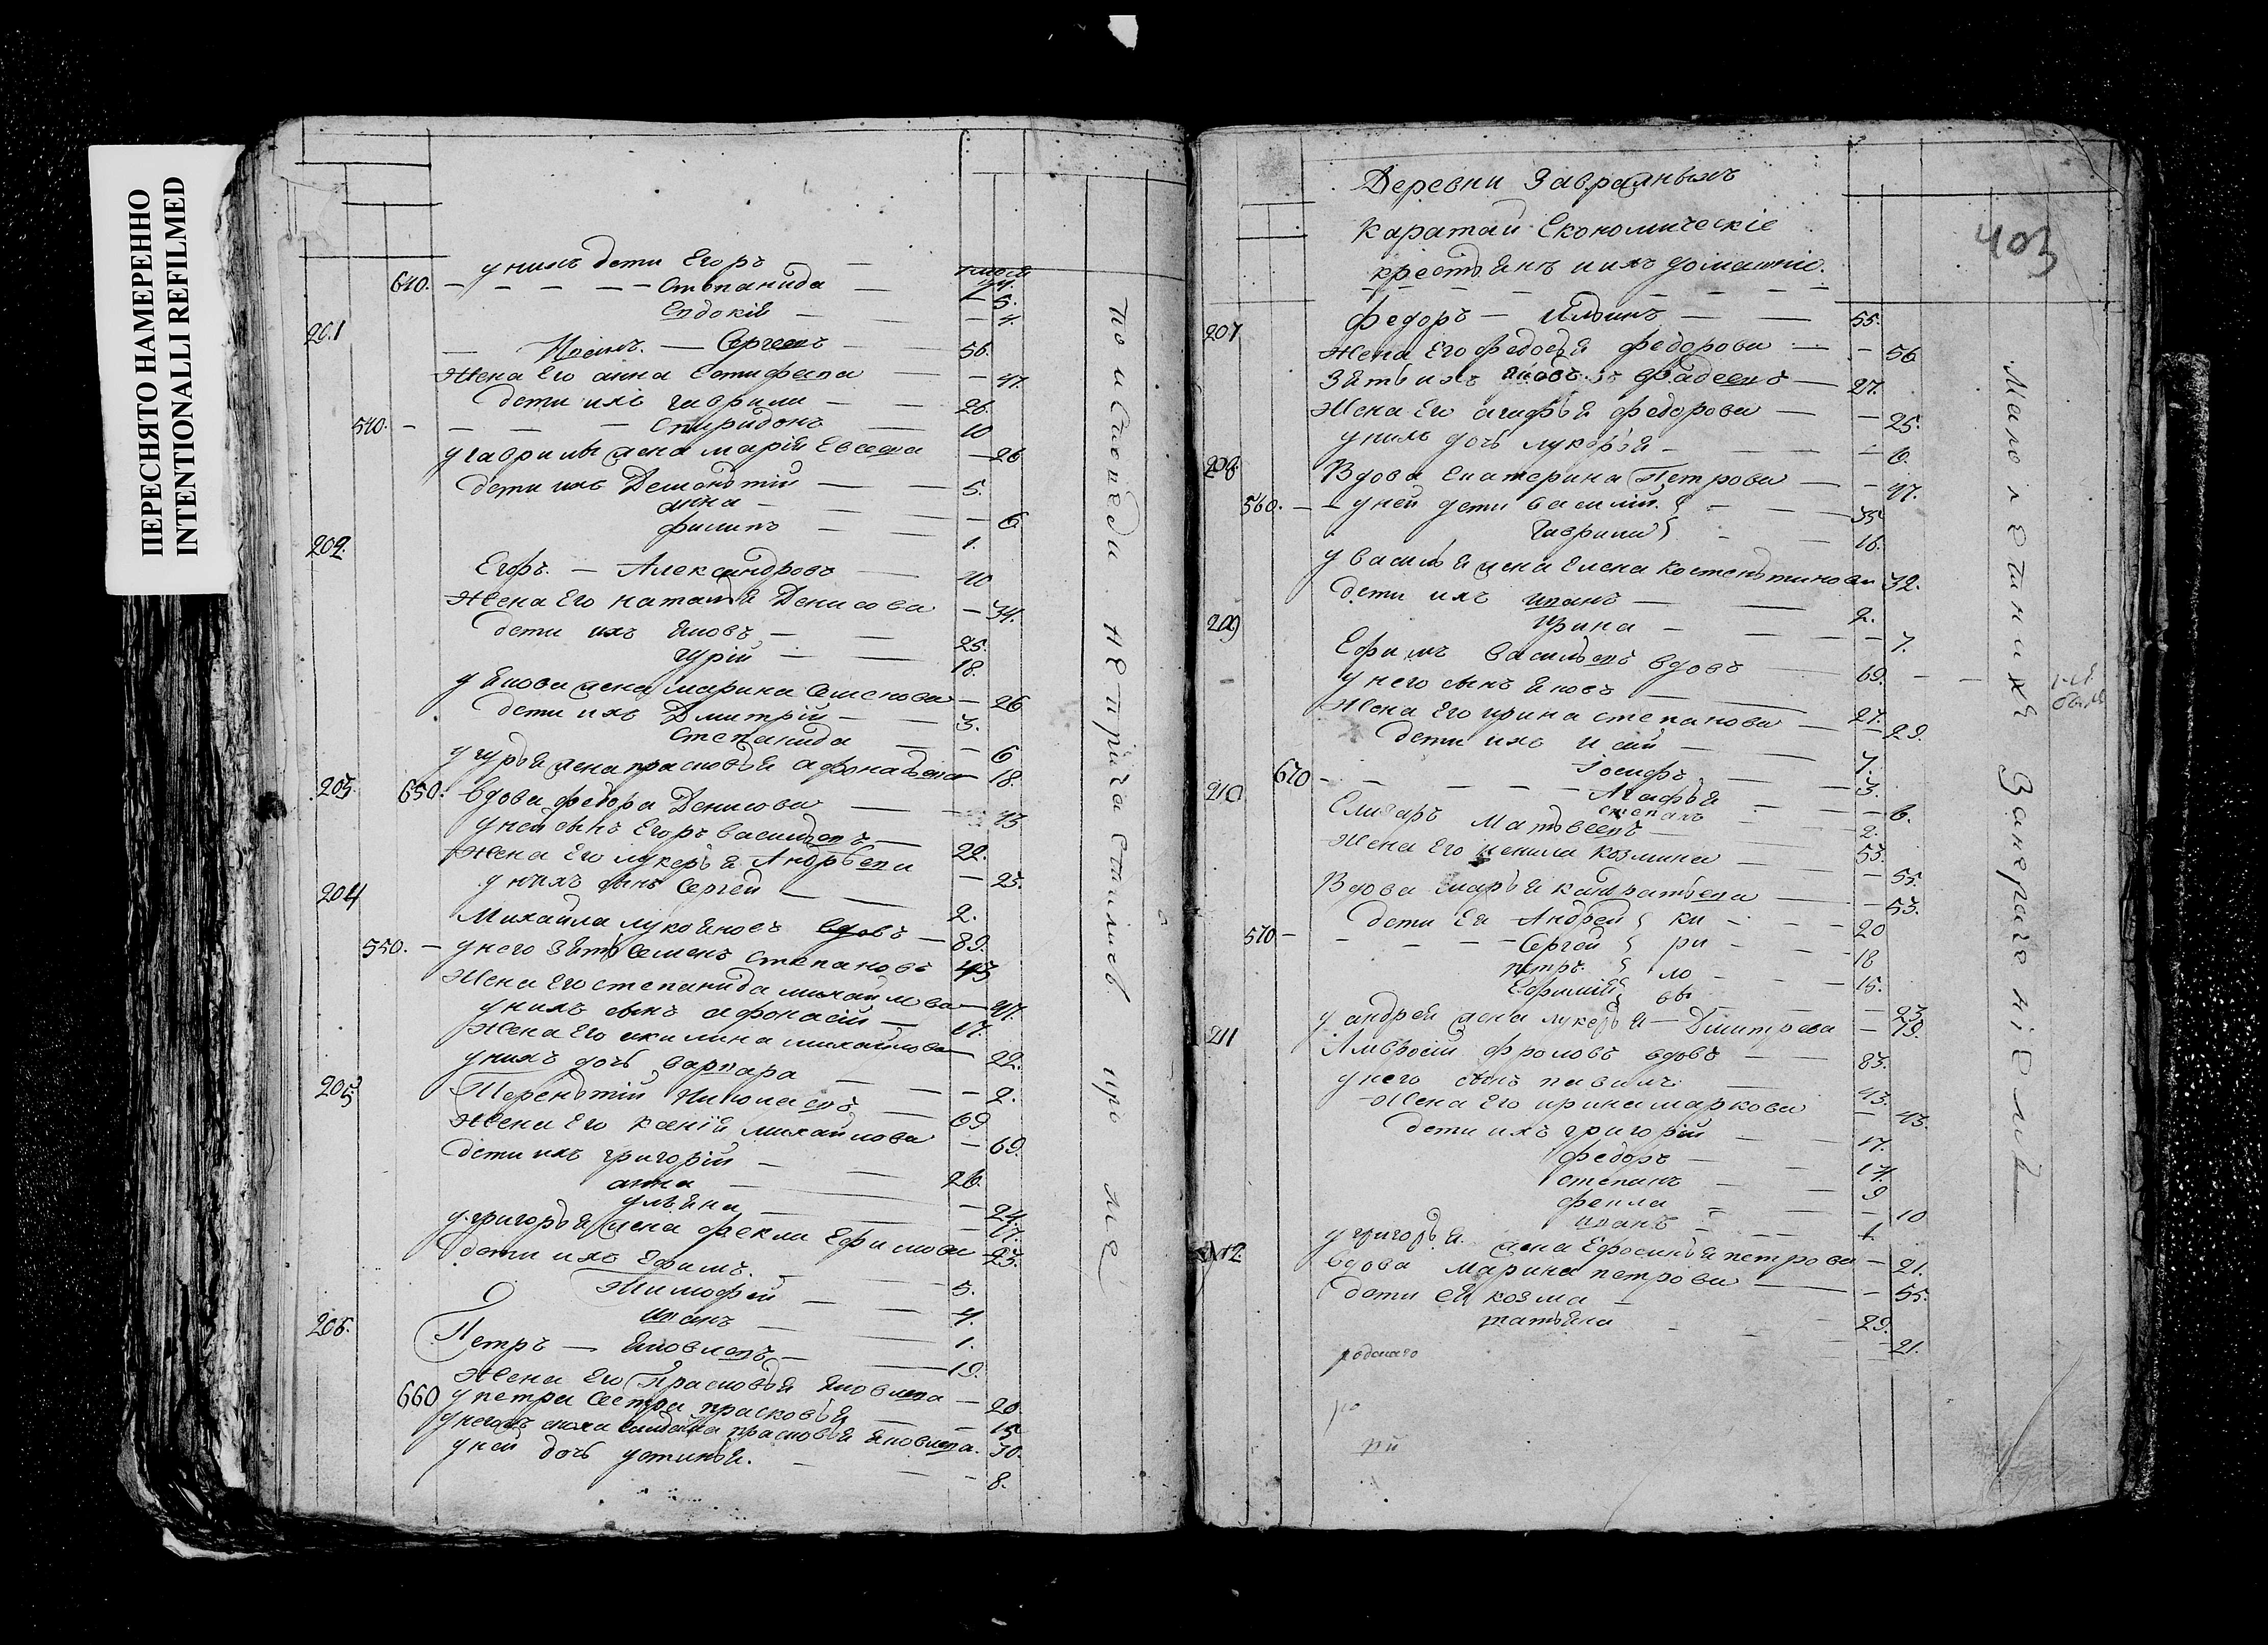 ПЕРЕСНЯТО НАМЕРЕННО
INTENTIONALLI REFILMED
у нихъ дети Егоръ —
640. — Степанида — 5.
Евдокія — 4.
201 — Сергеевъ — 56.
Жена Его анна — 47.
дети ихъ гаврила — 26.
540. — Спиридонъ — 10
у гаврилы жена марія — 26
дети ихъ — 5.
— 6
филипъ — 1.
202. Егоръ — Александровъ — 40
Жена Его наталья Денисова — 34.
дети ихъ яковъ — 25.
гурій — 18.
у якова жена марина семенова — 26
дети ихъ Дмитрій — 3.
Степанида — 6
у гурья жена прасковья — 18.
203. 650. вдова федора Денисова — 43
у ней сынъ Егоръ васильевъ — 22.
Жена Его лукерья Андрѣева — 23.
у нихъ сынъ Сергей — 2.
204 Михайла вдовъ — 89.
550. — у него зять семенъ степановъ 45
Жена Его степанида михайлова — 47.
у нихъ сынъ афонасій — 17.
Жена Его акилина михайлова — 22.
у нихъ дочь варвара — 2.
205 Терентій Николаевъ — 69
Жена Его ксенія михайлова — 69.
дети ихъ григорій — 26.
анна — 24.
ульяна — 17.
у григорья жена фекла Ефимова — 23.
дети ихъ Ефимъ — 5.
Тимофей — 4.
иванъ — 1.
206. Петръ — яковлевъ — 19.
Жена Его Прасковья яковлева — 20
660 у петра сестра прасковья — 15
прасковья яковлева. 30.
у ней дочь устинья. — 8.
по исповеди не причастились
403
Деревни Завражныхъ
Каратай Економическіе
крестьянъ и ихъ домашніе.
207 федоръ — Ильинъ — 55.
Жена Его федосья федорова — 56
Зять ихъ яковъ фадеевъ — 27.
Жена Его агафья федорова — 25.
у нихъ дочь лукерья — 6.
208 Вдова Екатерина Петрова — 47.
560. — у ней дети василій — 35
гаврила — 16.
у василья жена Елена костентинова 32.
дети ихъ иванъ — 2.
ирина — 7.
209 Ефимъ васильевъ вдовъ — 69.
у него сынъ яковъ — 27.
Жена Его ирина степанова — 29.
дети ихъ — 7.
670 — Іосифъ — 3.
Агафья — 6.
степанъ — 2.
210 Елизаръ Матвеевъ — 53.
Жена Его ненила козмина — 55.
Вдова марья кандратьева — 53.
дети Ея Андрей ки — 20
570 — Сергей ри — 18
петръ ло — 15.
вы
у андрей жена лукерья — Дмитрева — 23
211 Амвросій фроловъ вдовъ — 83.
у него сынъ павелъ — 43.
Жена Его ирина маркова — 43.
дети ихъ григорій — 17.
федоръ — 14.
степанъ — 9
фекла — 10
иванъ — 1
у григорья жена Ефросинья петрова — 21.
212. вдова Марина петрова — 55.
дети ея козма — 29.
татьяна — 21.
Малолетнихъ